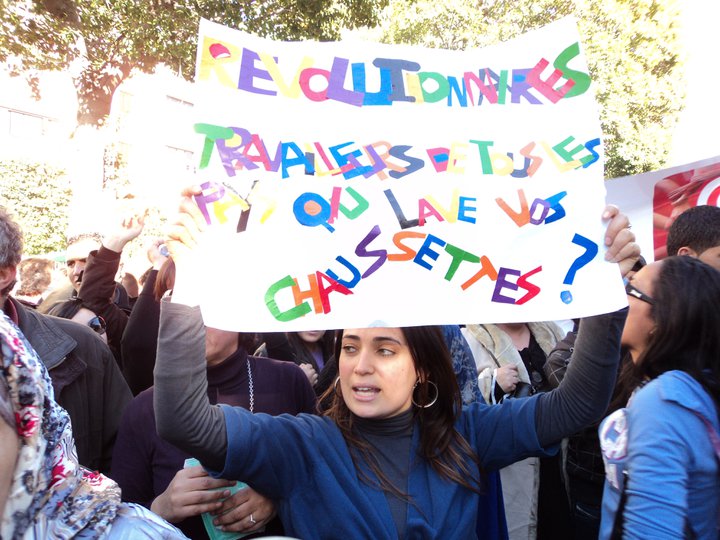 REVOLUTIONNAIRES
TRAVAILLEURS DE TOUS LES
PAYS QUI LAVE VOS
CHAUSSETTES ?